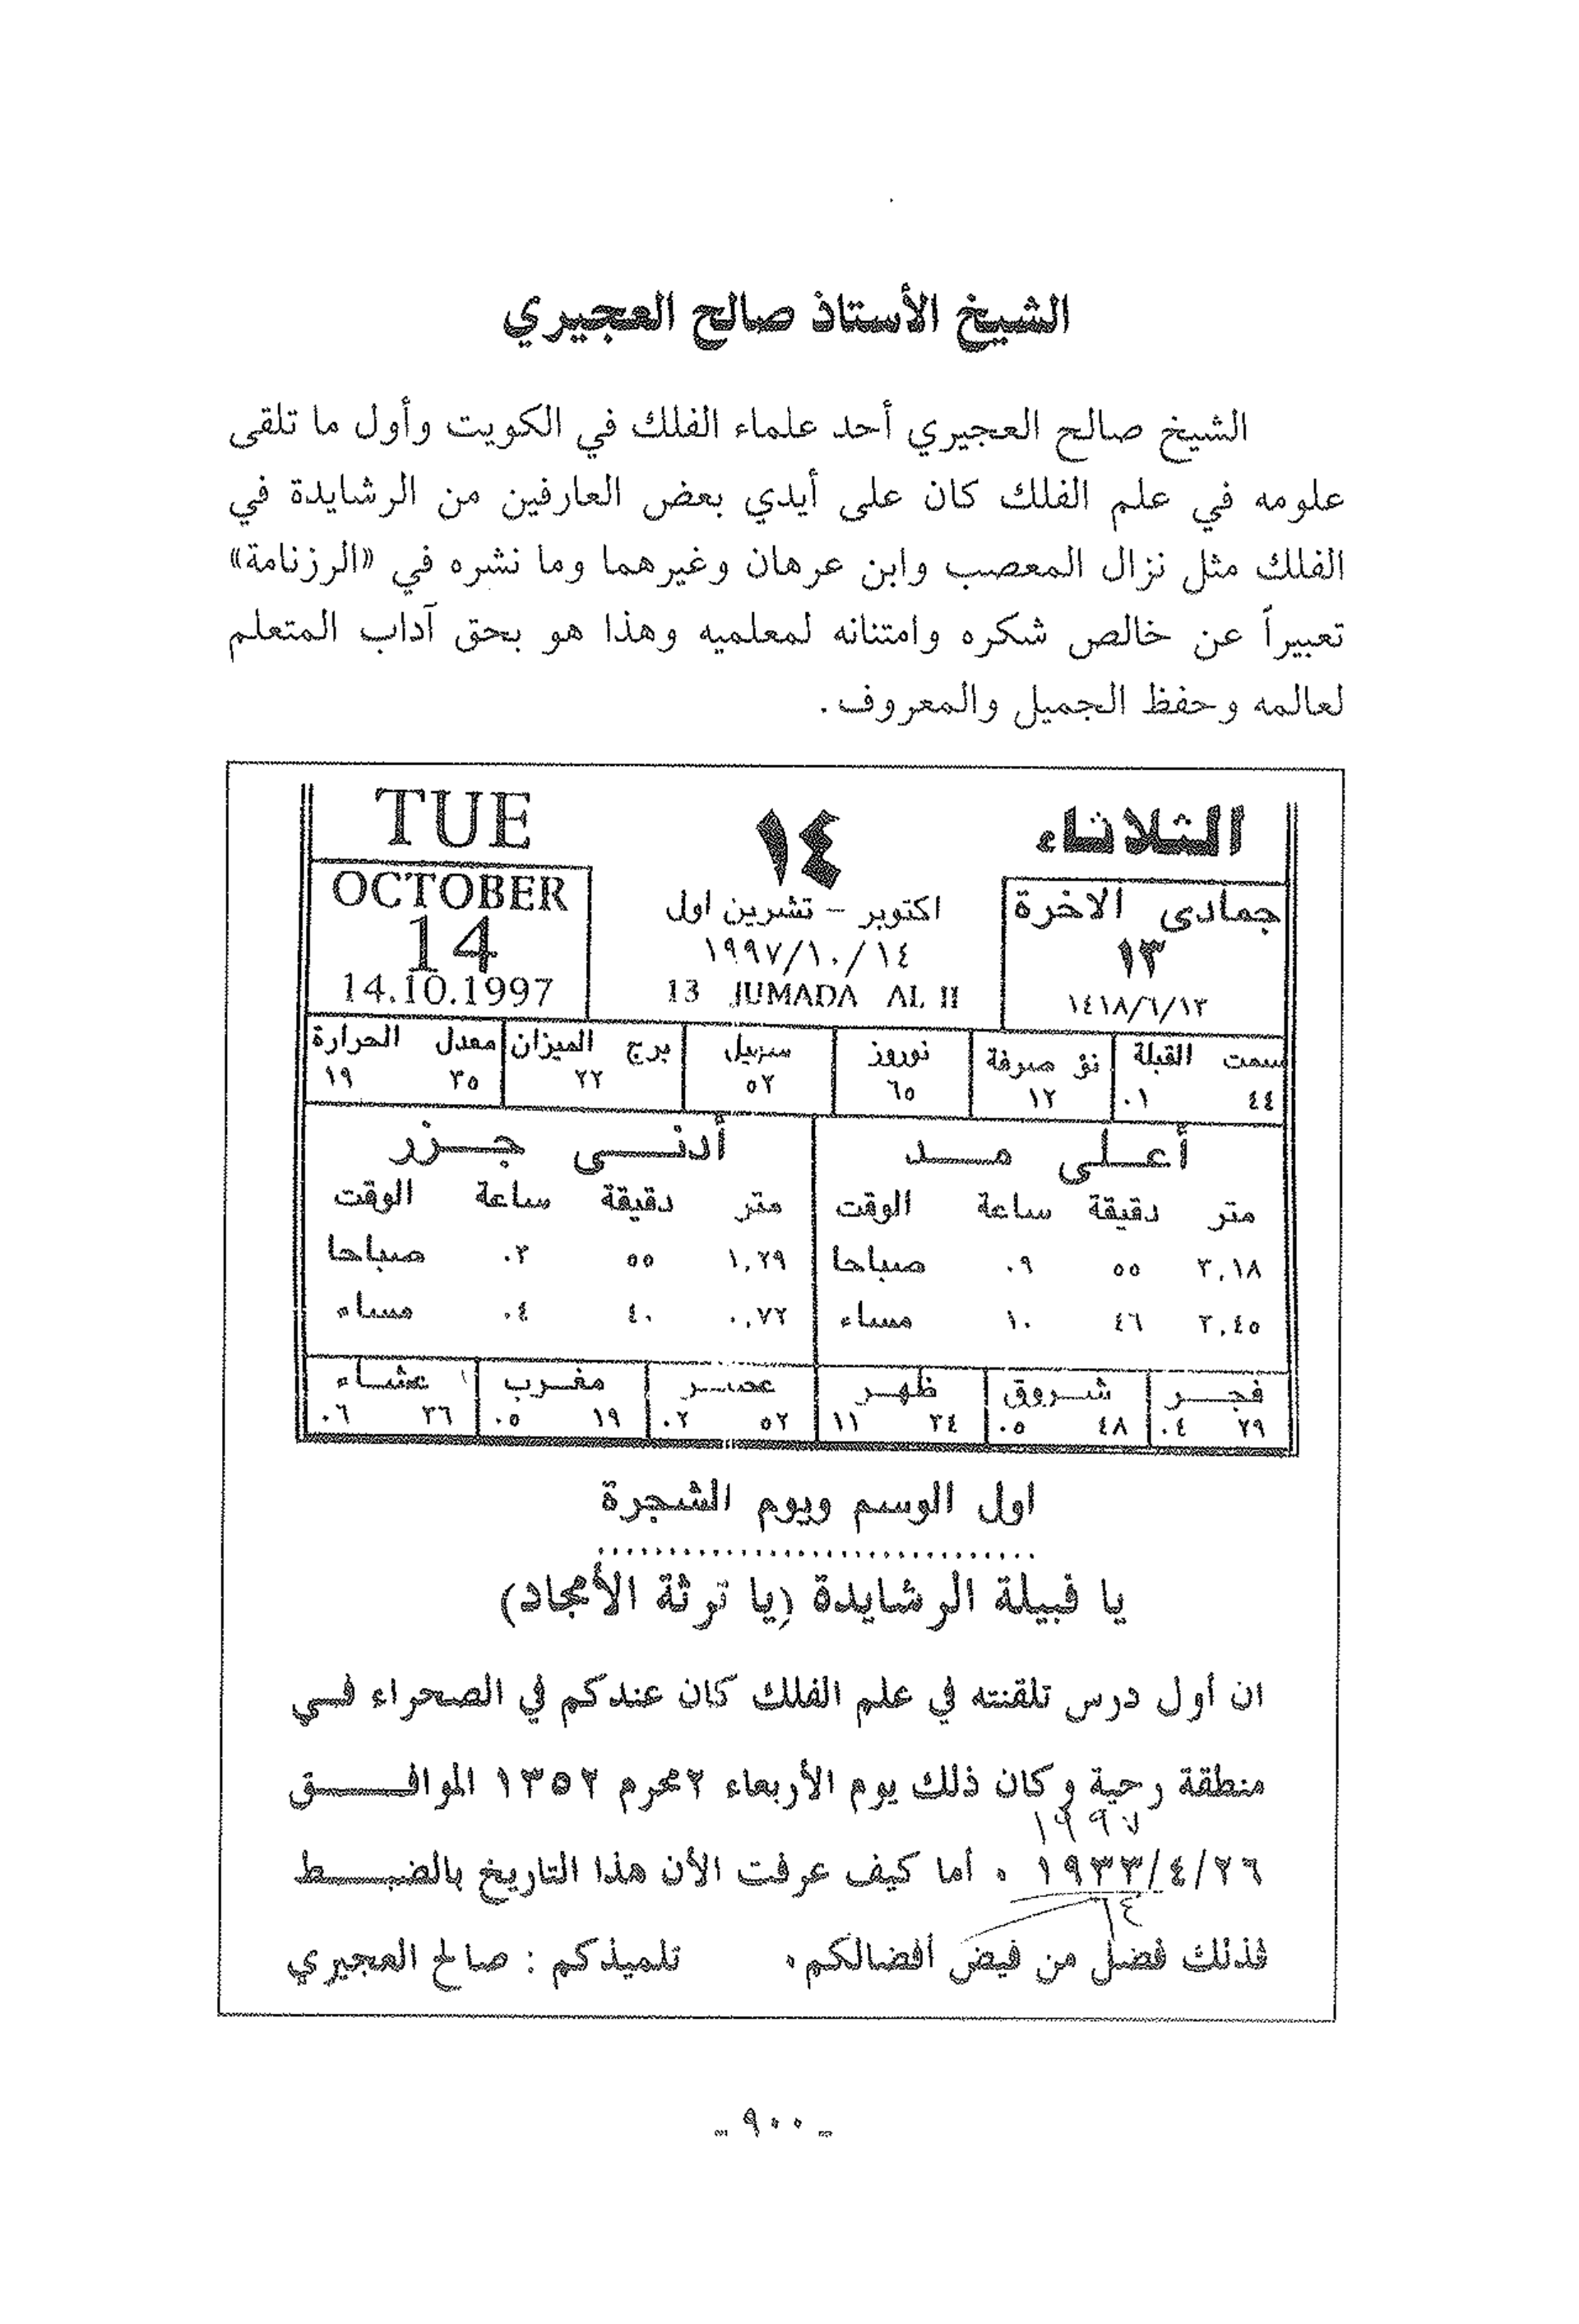 الشيخ الأستاذ صالح العجيري
الشيخ صالح العجيري أحد علماء الفلك في الكويت وأول ما تلقى
علومه في علم الفلك كان على أيدي بعض العارفين من الرشايدة في
الفلك مثل نزال المعصب وابن عرهان وغيرهما وما نشره في «الرزنامة»
تعبيراً عن خالص شكره وامتنانه لمعلميه وهذا هو بحق آداب المتعلم
لعالمه وحفظ الجميل والمعروف.
الثلاثاء ١٤ TUE
جمادى الاخرة اكتوبر - تشرين اول OCTOBER
١٣ ١٩٩٧/١٠/١٤ 14
١٤١٨/٦/١٣ 13 JUMADA AL II 14.10.1997
سمت القبلة نؤ صرفة نوروز سهيل برج الميزان معدل الحرارة
٤٤ ٠١ ١٢ ٦٥ ٥٢ ٢٢ ٣٥ ١٩
أعلى مد أدنى جزر
متر دقيقة ساعة الوقت متر دقيقة ساعة الوقت
٣,١٨ ٥٥ ٠٩ صباحا ١,٢٩ ٥٥ ٠٣ صباحا
٣,٤٥ ٤٦ ١٠ مساء ٠,٧٢ ٤٠ ٠٤ مساء
فجر شروق ظهر عصر مغرب عشاء
٢٩ ٠٤ ٤٨ ٠٥ ٣٤ ١١ ٥٢ ٠٢ ١٩ ٠٥ ٣٦ ٠٦
اول الوسم ويوم الشجرة
يا قبيلة الرشايدة (يا ترثة الأمجاد)
ان أول درس تلقنته في علم الفلك كان عندكم في الصحراء في
منطقة رحية وكان ذلك يوم الأربعاء ٢محرم ١٣٥٢ الموافق
١٩٩٧
١٩٣٣/٤/٢٦ ٠ أما كيف عرفت الأن هذا التاريخ بالضبط
٦٤
فذلك فضل من فيض أفضالكم٠ تلميذكم : صالح العجيري
- ٩٠٠ -